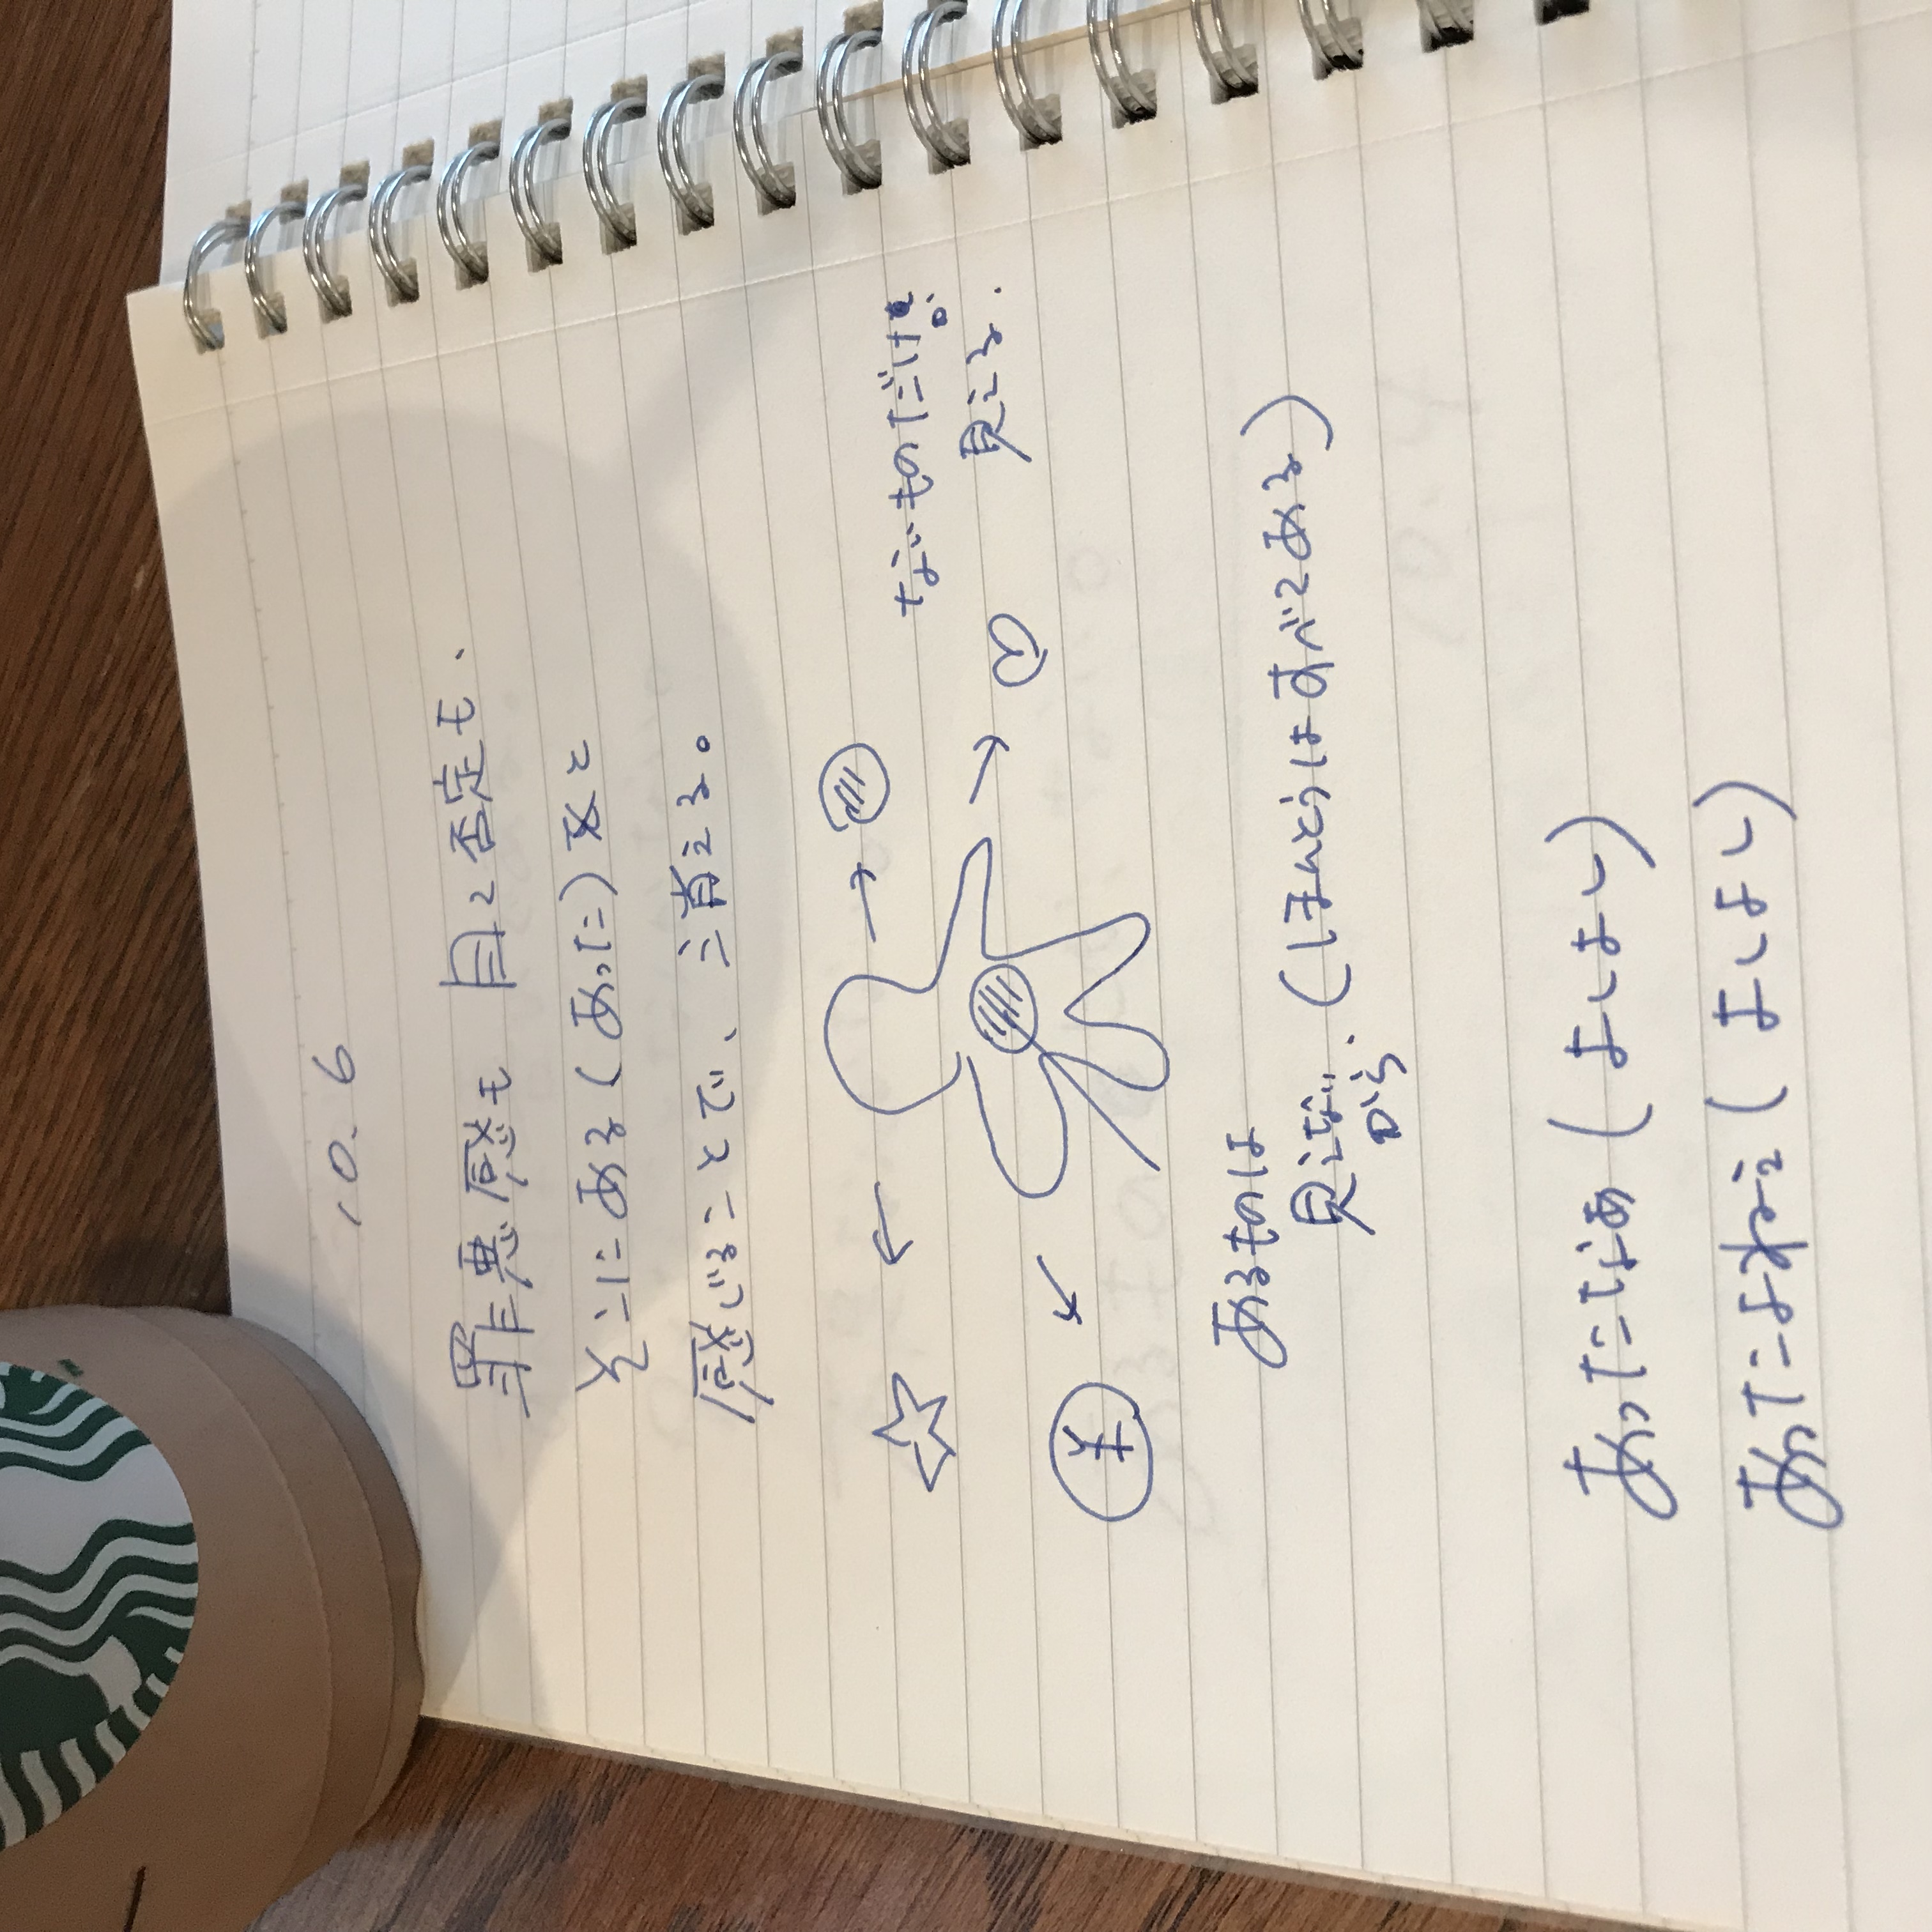 10.6
罪悪感も 自己否定も、
そこにある(あった)なと
感じることで、消える。
ないものだけが
見える.
¥
あるものは
見えない
から.
(ほんとうはすべてある)
あったなぁ(よしよし)
あったよねぇ(よしよし)